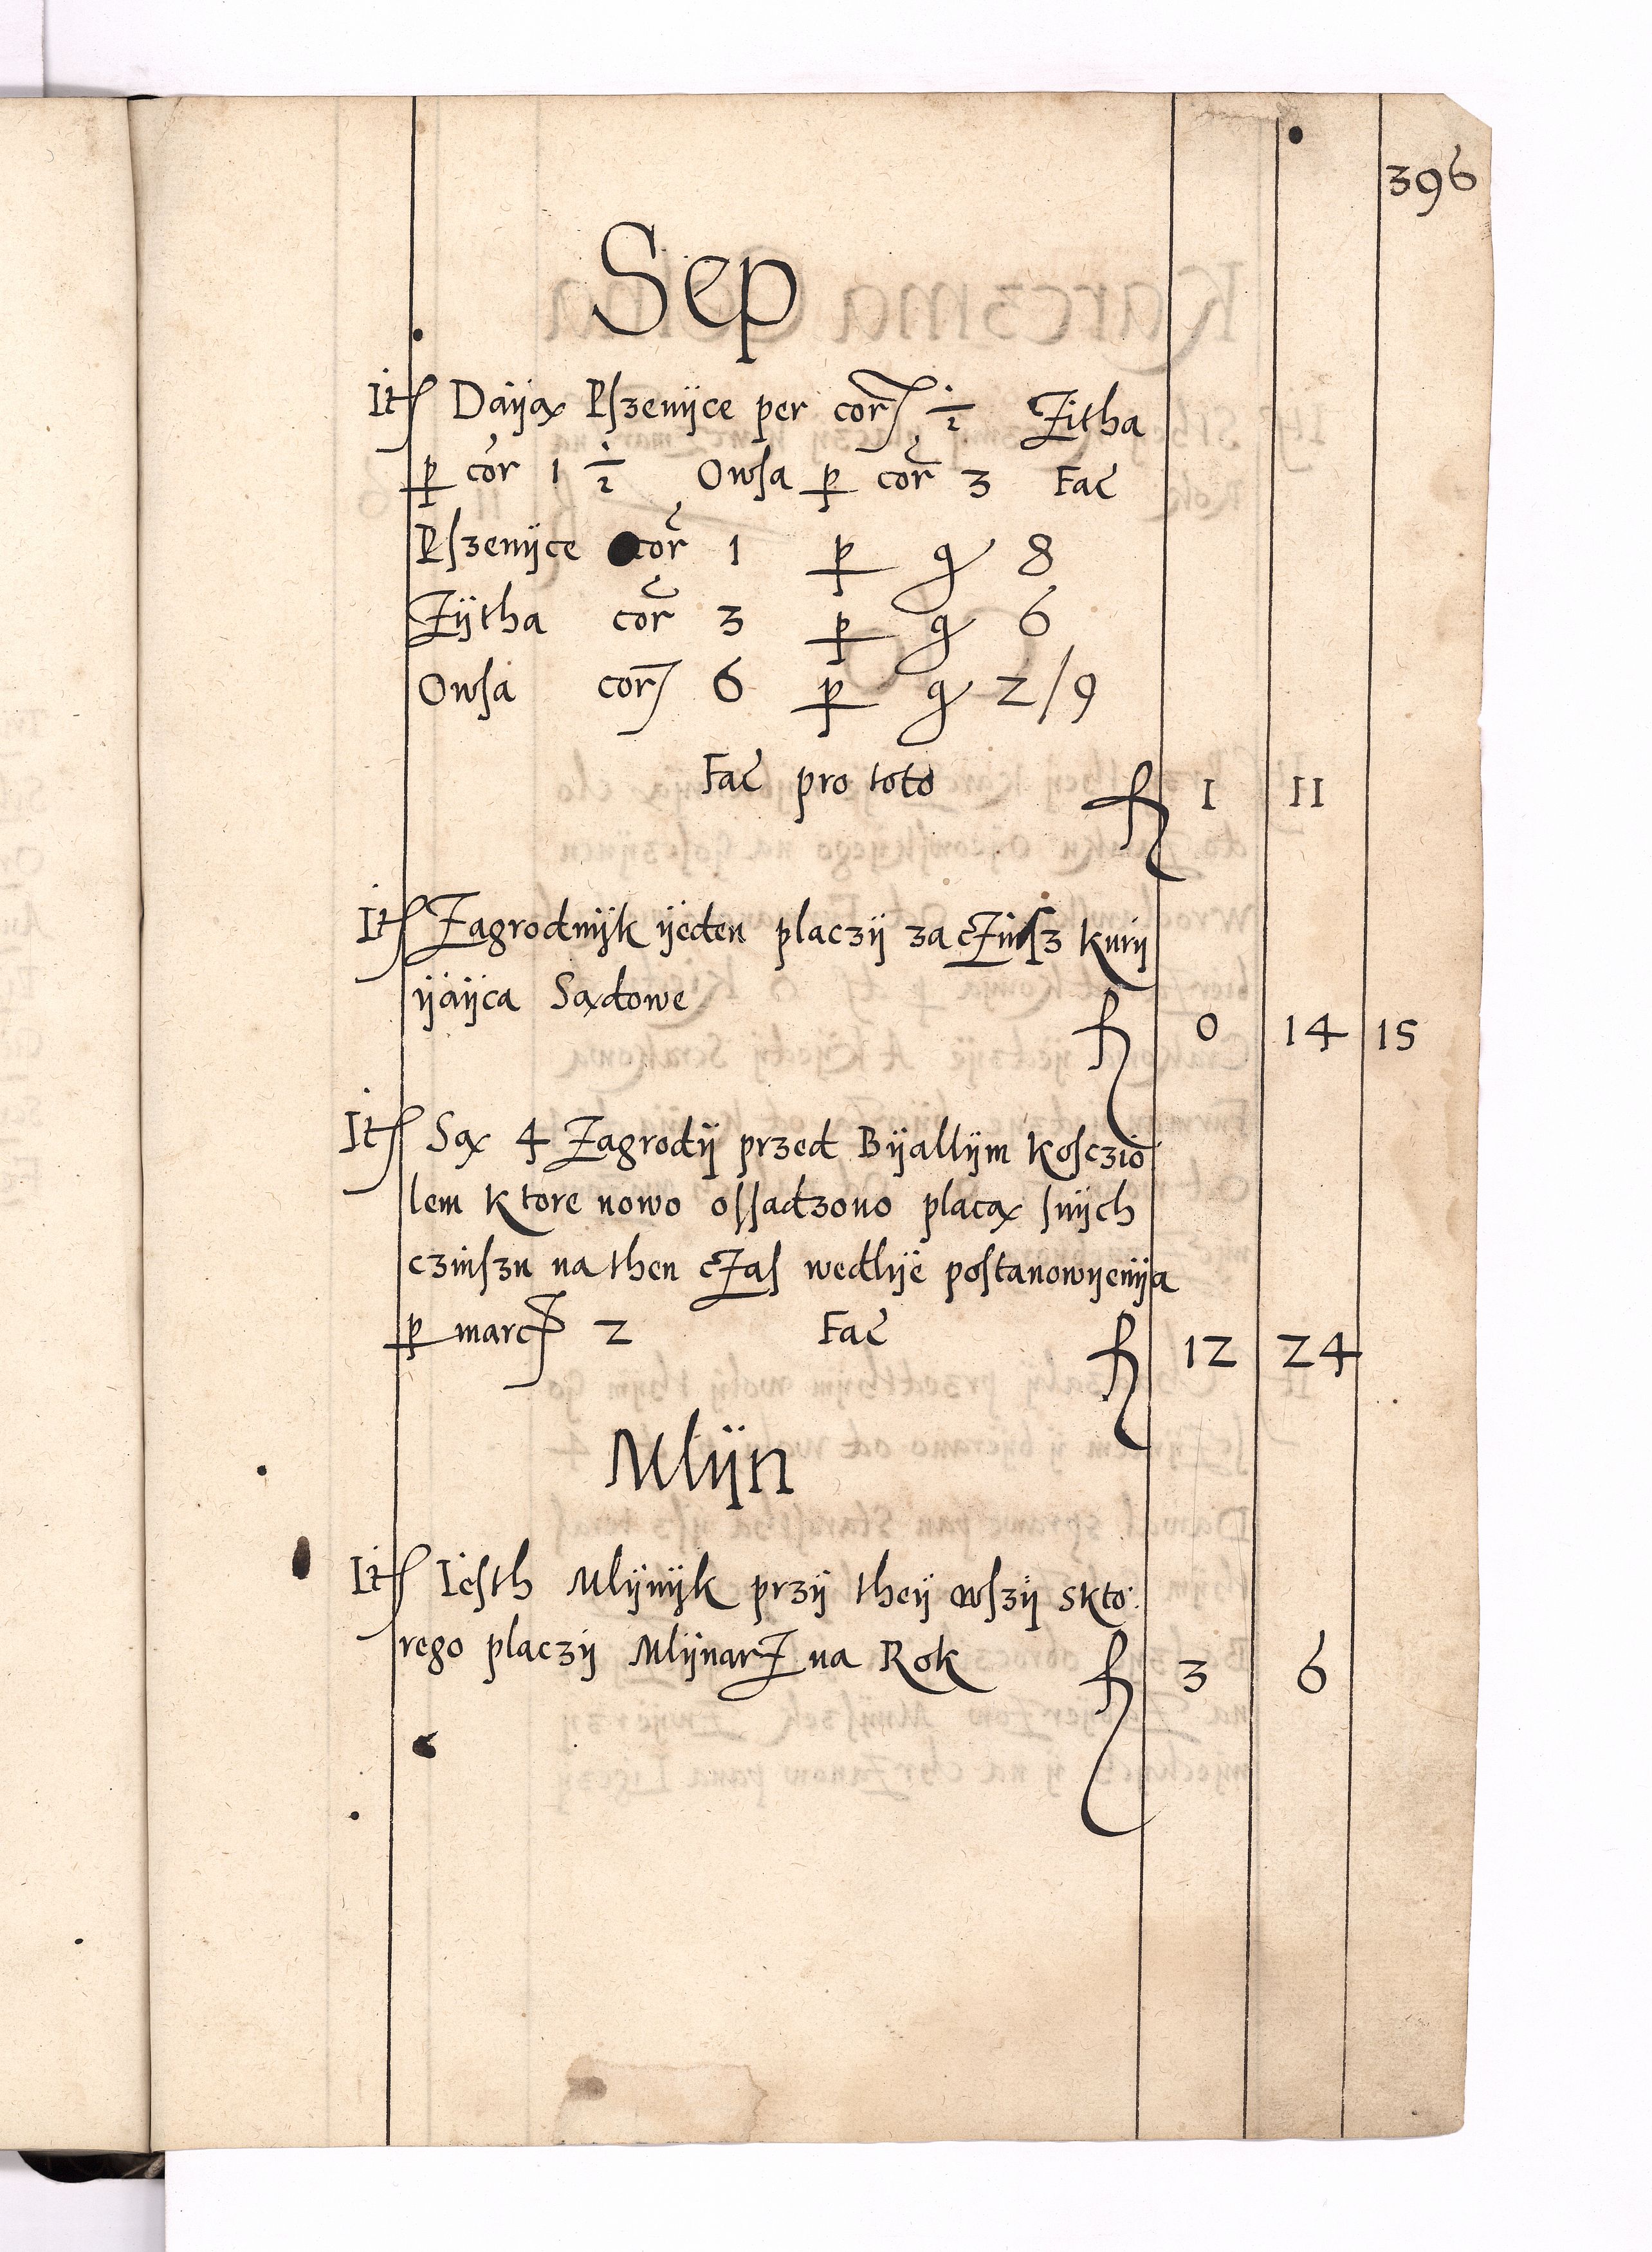 396
Sep
Itẽ Dayą Pszenyce per cor ½ Zitha
p cor 1 ½ Owsa p cor 3 Fac
Pszenyce cor 1 p gr 8
Zytha cor 3 p gr 6
Owsa cor 6 p gr 2/9
Fac pro toto fl 1 11
Itẽ Zagrodnyk yeden placzy za cZinsz kury
yayca Sądowe fl 0 14 15
Itẽ Są 4 Zagrody przed Byallym kosczio
lem ktore nowo ossadzono placą snych
czinszu na then cZas wedlye postanowyenya
p marc 2 Fac fl 12 24
Mlyn
Itẽ Iesth Mlynyk przy they wszy skto
rego placzy MlynarZ na Rok fl 3 6